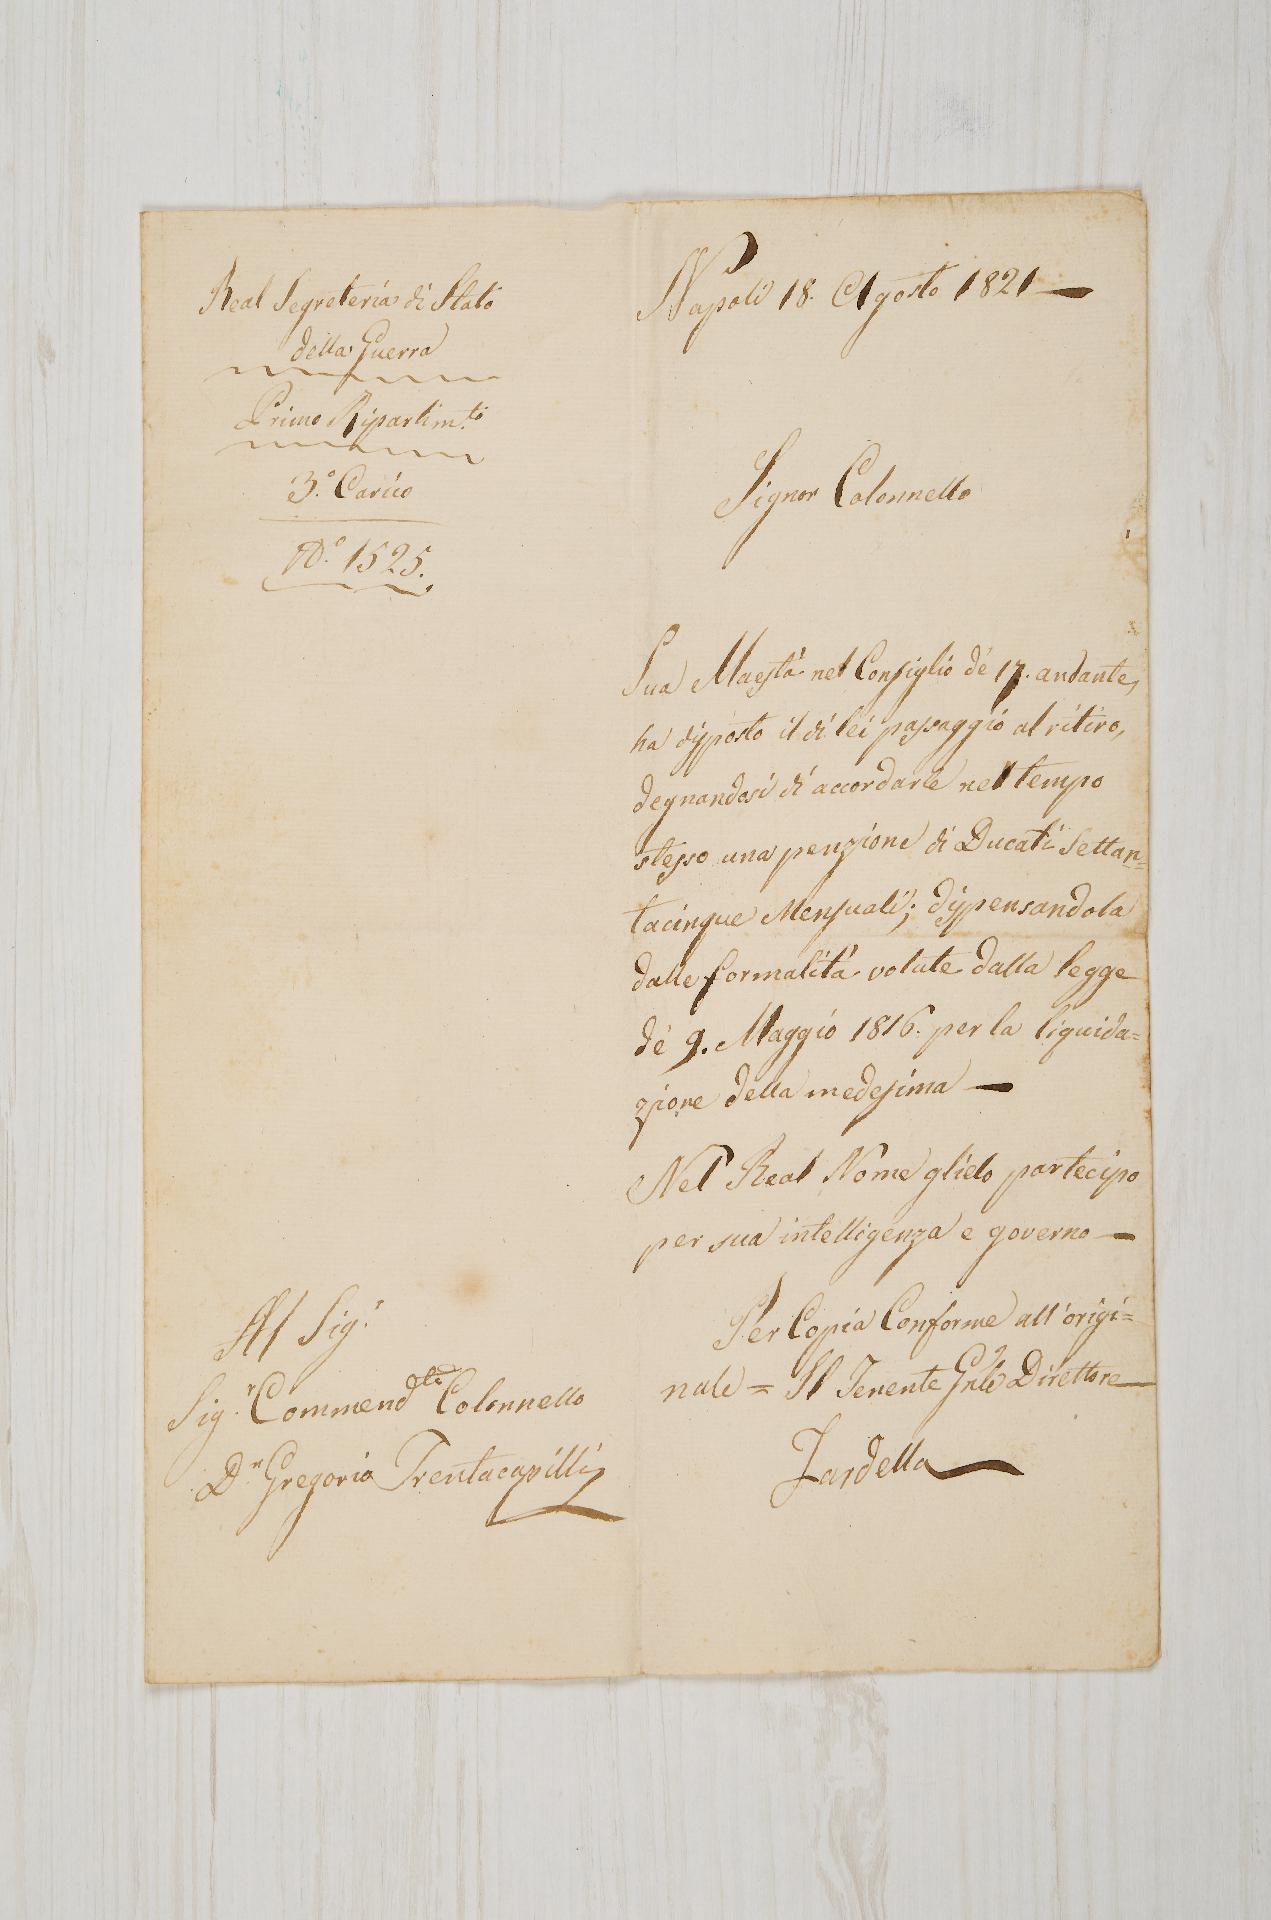 Real Segreteria di Stato
della Guerra
Primo Ripartim.to
3.° Carico
N.° 1525.
Napoli 18. Agosto 1821
Signor Colonnello
Sua Maestà nel Consiglio de' 17. andante,
ha disposto il di lei passaggio al ritiro,
degnandosi di accordarle nel tempo
stesso una penzione di Ducati Settan=
tacinque Mensuali; dispensandola
dalle formalità volute dalla legge
de' 9. Maggio 1816. per la liquida=
zione della medesima
Nel Real Nome glielo partecipo
per sua intelligenza e governo
Per Copia Conforme all'origi=
nale = Il Tenente Gnle Direttore
Fardella
Al Sig.r
Sig.r Commend Colonnello
D.n Gregorio Trentacapilli